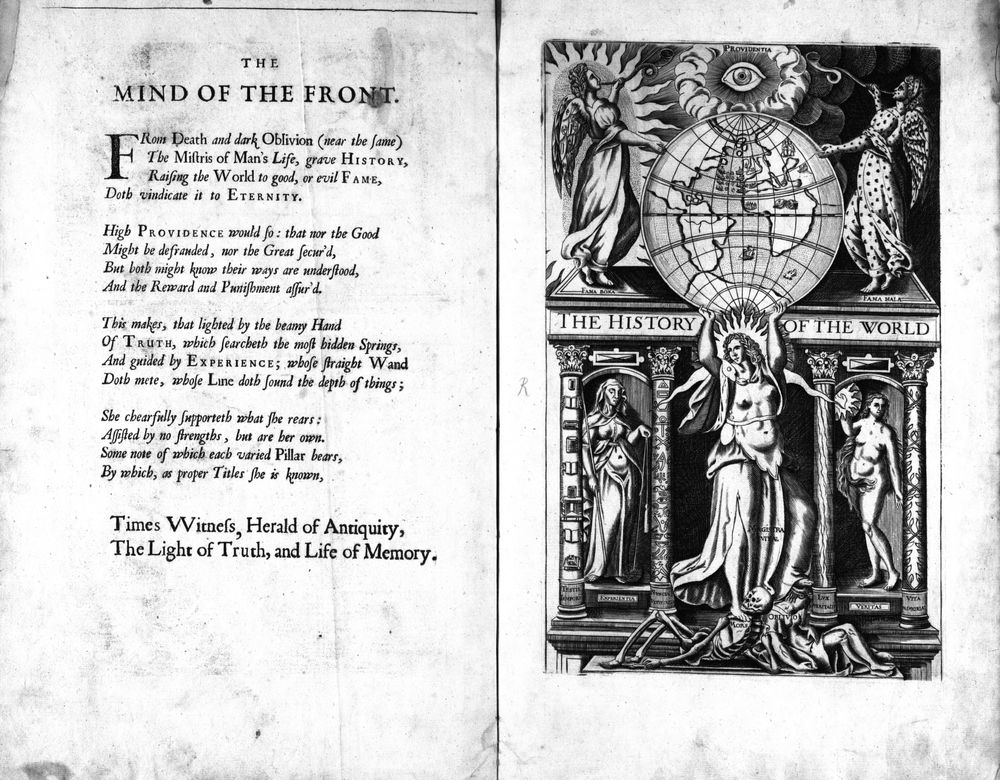 THE
MIND OF THE FRONT.
FRom Death and dark Oblivion (near the ſame)
The Miſtris of Man's Life, grave HISTORY,
Raiſing the World to good, or evil FAME,
Doth vindicate it to ETERNITY.
High PROVIDENCE would ſo: that nor the Good
Might be defrauded, nor the Great ſecur'd,
But both might know their ways are underſtood,
And the Reward and Puniſhment aſſur'd.
This makes, that lighted by the beamy Hand
Of TRUTH, which ſearcheth the moſt hidden Springs,
And guided by EXPERIENCE; whoſe ſtraight Wand
Doth mete, whoſe Line doth ſound the depth of things;
She chearfully ſupporteth what ſhe rears:
Aſſiſted by no ſtrengths, but are her own.
Some note of which each varied Pillar bears,
By which, as proper Titles ſhe is known,
Times Witneſs, Herald of Antiquity,
The Light of Truth, and Life of Memory.
PROVIDENTIA
FAMA BONA
FAMA MALA
THE HISTORY OF THE WORLD
R
MAGISTRA
VITAE
TESTIS
TEMPORUM
EXPERIENTIA
LUX
VERITATIS
VERITAS
VITA
MEMORIAE
MORS
OBLIVIO